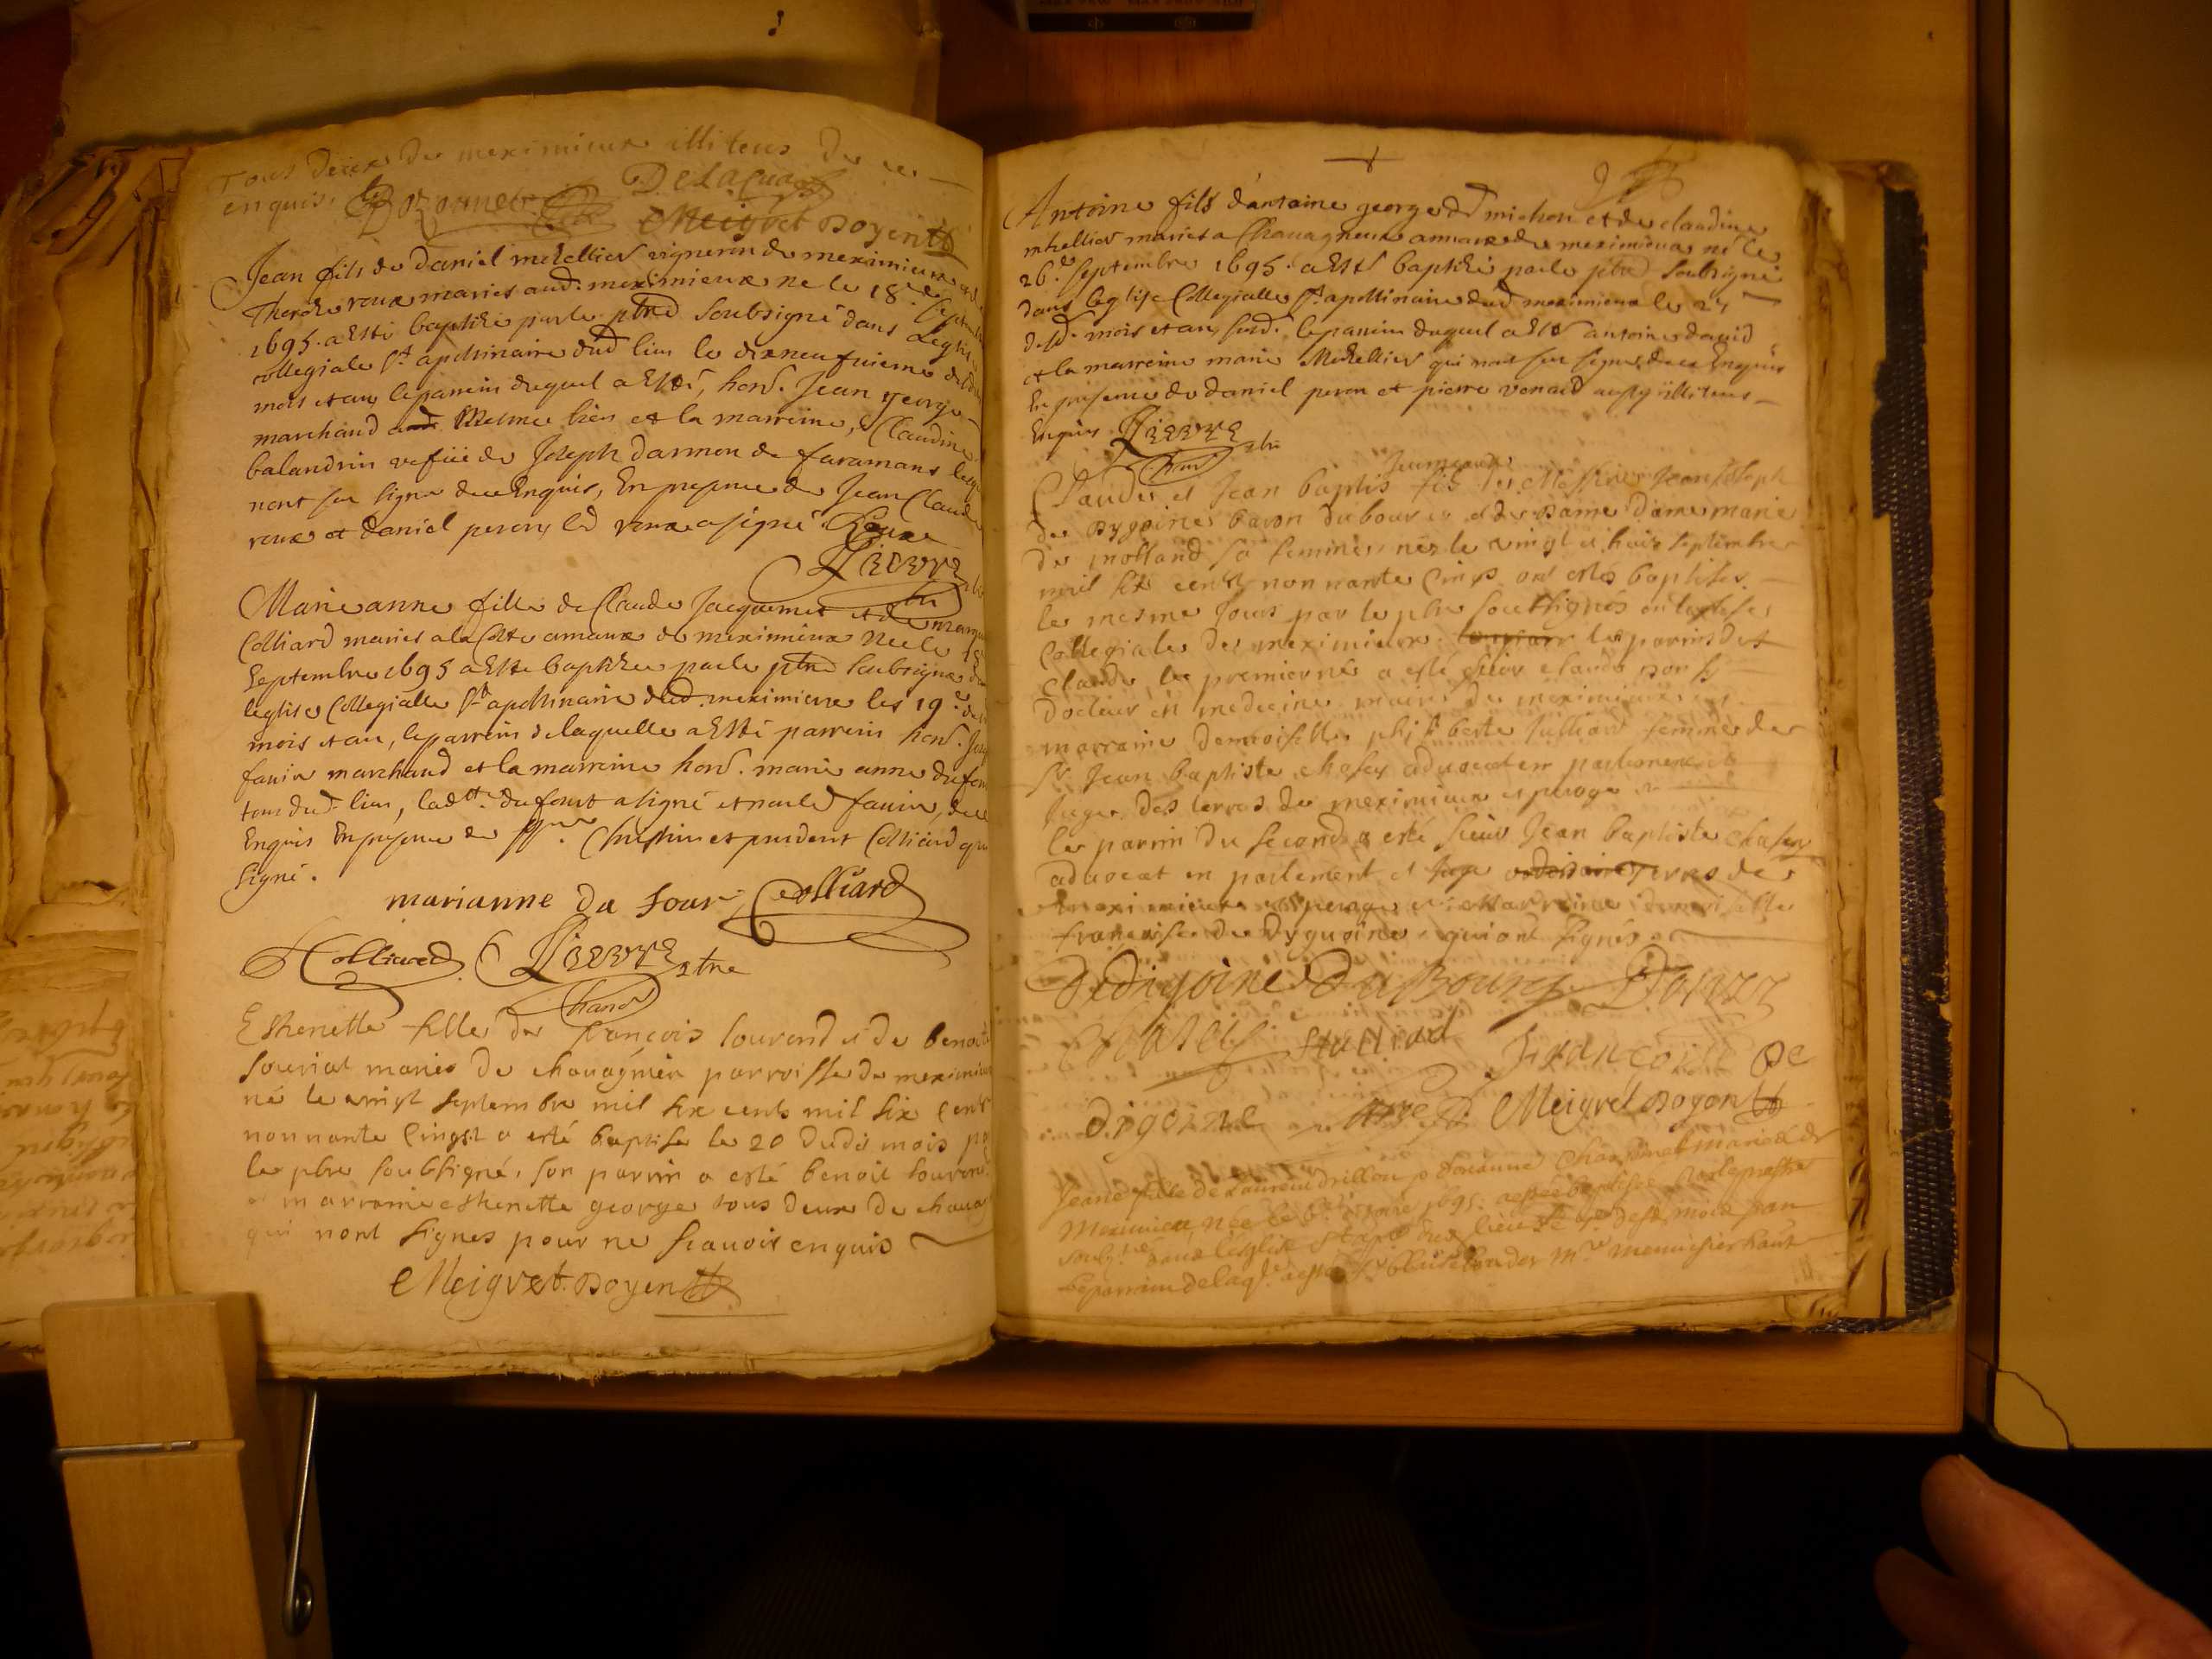 Tous deux de meximieux illiteus de ce
enquis.
Delacua
Meigret Doyen
Jean fils de Daniel mehellier vigneron de meximieux et de
Therese roux maries aud. meximieux ne le 18e Septem
1695. a Esté baptizé par le ptre Soubsigné dans Leglise
collegiale St apollinaire dud lieu le dixneufuieme dud
mois et an, le parrein duquel a Esté, hon. Jean george
marchand mesme lieu et la marreine, Claudine
balandrin vefue de Joseph darmon de faramans lesq
nont sceu signer de ce Enquis, En presence de Jean Claude
roux et daniel peron, led roux a signé. Roux
Pierre
Marie anne fille de Claude Jacquemet et de marg
Colliard maries a la Coste annaux de meximieux Nee le 18
Septembre 1695 a Esté baptizée par le ptre Soubsigné d
leglise Collegialle St apollinaire dud. meximieux les 19e du
mois et an, le parrein de laquelle a Esté parrein hon. Jo
fauin marchand et la marreine hon. marie anne dufou
tous dud. lieu, lad. dufour a signé et non led fauin, de ce
Enquis En presence de et prudent Colliard qui
Signé.
marianne du four Colliard
Colliard Pierre ptre
Esthenette fille de françois lourend et de benoite
souriat maries de chauagnieu parroisse de meximieux
né le vingt septembre mil six cents mil six Cents
nonnante Cinqt a esté baptise le 20 dudit mois p
le ptre soubsigné, son parrin a esté benoit lourend
et marraine esthenette george tous deux de chauag
qui nont signes pour ne scauoir enquis
Meigret Doyen
Antoine fils d'antoine george dt michon et de claudine
mhellier maries a Chauagneux annaux de meximieux né le
26e septembre 1695. a Esté baptizé par le ptre Soubsigné
dans leglise Collegialle St apollinaire dud meximieux le 27
dud. mois et an susd. le parrein duquel a Esté antoine dauid
et la marreine marie Mehellier qui nont sceu signer de ce Enquis
En presence de daniel peron et pierre venard aussy illiteus
Enquis Pierre ptre
Jumeaux
Claude et Jean baptis fis les Messire Jean Joseph
de Dygoine baron du bourg et de Dame Dame marie
de molland sa femme, nés le vingt et huit septembre
mil six cents nonnante Cinqt ont estés baptises
le mesme jour par le ptre soubsignés en leglise
Collegiale de meximieux les parrins de
claude le premier né a esté sieur claude Donzy
docteur en medecine maire de meximieux et
marraine demoiselle philiberte Julliard femme de
Sr Jean baptiste chasey aduocat en parlement
Juge des terres de meximieux et peroge
le parrin du second a esté sieur Jean baptiste chasey
aduocat en parlement et Juge terres de
meximieux et peroge et marraine demoiselle
francoise de Dygoine qui ont signes
Dedigoine Du Bourg Donzy
Chasey Julliard Francoise De
Digoine Meigret Doyen
Jeane fille de Laurent drillon et de Jeanne mariés de
Meximieux, Née le 6e 1695. a esté baptisée par le prestre
soubsé. dans l'église St apo. dud lieu le 7e desd. mois & an
Le parrein de laqle. a esté Mre